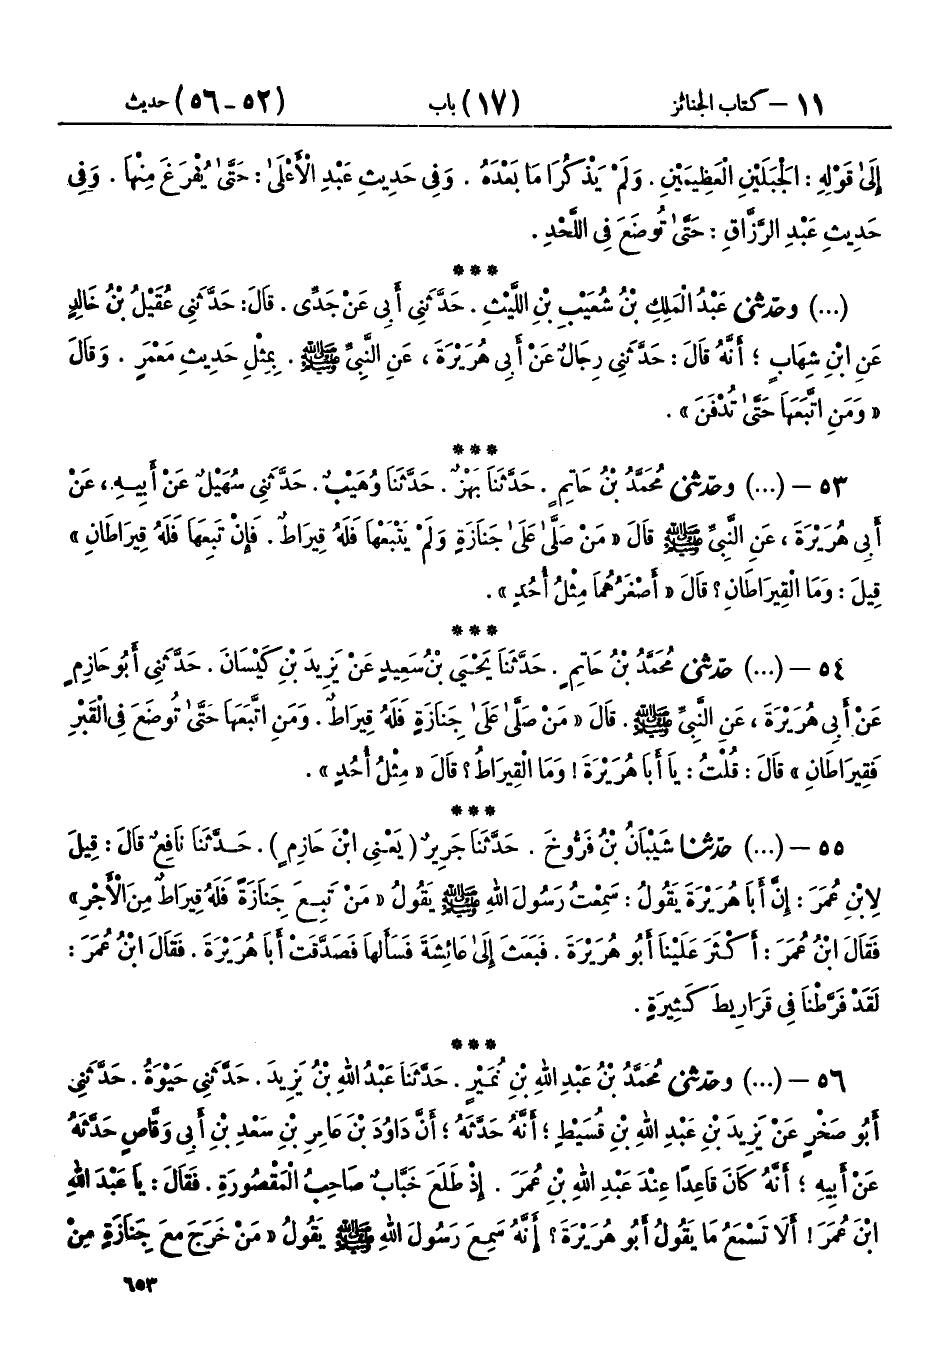 ١١ – كتاب الجنائز (١٧) باب (٥٢-٥٦) حديث
إِلَىٰ قَوْلِهِ : الْجَبَلَيْنِ الْعَظِيمَيْنِ . وَلَمْ يَذْكُرَا مَا بَعْدَهُ . وَفِي حَدِيثِ عَبْدِ الْأَعْلَىٰ : حَتَّىٰ يُفْرَغَ مِنْهَا . وَفِي
حَدِيثِ عَبْدِ الرَّزَّاقِ : حَتَّىٰ تُوضَعَ فِي اللَّحْدِ .
***
(...) وحدثني عَبْدُ الْمَلِكِ بْنُ شُعَيْبِ بْنِ اللَّيْثِ . حَدَّثَنِي أَبِي عَنْ جَدِّي . قَالَ: حَدَّثَنِي عُقَيْلُ بْنُ خَالِدٍ
عَنِ ابْنِ شِهَابٍ ؛ أَنَّهُ قَالَ : حَدَّثَنِي رِجَالٌ عَنْ أَبِي هُرَيْرَةَ ، عَنِ النَّبِيِّ ﷺ . بِمِثْلِ حَدِيثِ مَعْمَرٍ . وَقَالَ
« وَمَنِ اتَّبَعَهَا حَتَّىٰ تُدْفَنَ » .
***
٥٣ – (...) وحدثني مُحَمَّدُ بْنُ حَاتِمٍ . حَدَّثَنَا بَهْزٌ . حَدَّثَنَا وُهَيْبٌ . حَدَّثَنِي سُهَيْلٌ عَنْ أَبِيهِ ، عَنْ
أَبِي هُرَيْرَةَ ، عَنِ النَّبِيِّ ﷺ قَالَ « مَنْ صَلَّىٰ عَلَىٰ جَنَازَةٍ وَلَمْ يَتْبَعْهَا فَلَهُ قِيرَاطٌ . فَإِنْ تَبِعَهَا فَلَهُ قِيرَاطَانِ »
قِيلَ : وَمَا الْقِيرَاطَانِ ؟ قَالَ « أَصْغَرُهُمَا مِثْلُ أُحُدٍ » .
***
٥٤ – (...) حدثني مُحَمَّدُ بْنُ حَاتِمٍ . حَدَّثَنَا يَحْيَىٰ بْنُ سَعِيدٍ عَنْ يَزِيدَ بْنِ كَيْسَانَ . حَدَّثَنِي أَبُو حَازِمٍ
عَنْ أَبِي هُرَيْرَةَ ، عَنِ النَّبِيِّ ﷺ . قَالَ « مَنْ صَلَّىٰ عَلَىٰ جِنَازَةٍ فَلَهُ قِيرَاطٌ . وَمَنِ اتَّبَعَهَا حَتَّىٰ تُوضَعَ فِي الْقَبْرِ
فَقِيرَاطَانِ » قَالَ : قُلْتُ : يَا أَبَا هُرَيْرَةَ ! وَمَا الْقِيرَاطُ ؟ قَالَ « مِثْلُ أُحُدٍ » .
***
٥٥ – (...) حدثنا شَيْبَانُ بْنُ فَرُّوخَ . حَدَّثَنَا جَرِيرٌ ( يَعْنِي ابْنَ حَازِمٍ ) . حَدَّثَنَا نَافِعٌ قَالَ : قِيلَ
لِابْنِ عُمَرَ : إِنَّ أَبَا هُرَيْرَةَ يَقُولُ : سَمِعْتُ رَسُولَ اللهِ ﷺ يَقُولُ « مَنْ تَبِعَ جِنَازَةً فَلَهُ قِيرَاطٌ مِنَ الْأَجْرِ »
فَقَالَ ابْنُ عُمَرَ : أَكْثَرَ عَلَيْنَا أَبُو هُرَيْرَةَ . فَبَعَثَ إِلَىٰ عَائِشَةَ فَسَأَلَهَا فَصَدَّقَتْ أَبَا هُرَيْرَةَ . فَقَالَ ابْنُ عُمَرَ :
لَقَدْ فَرَّطْنَا فِي قَرَارِيطَ كَثِيرَةٍ .
***
٥٦ – (...) وحدثني مُحَمَّدُ بْنُ عَبْدِ اللهِ بْنِ نُمَيْرٍ . حَدَّثَنَا عَبْدُ اللهِ بْنُ يَزِيدَ . حَدَّثَنِي حَيْوَةُ . حَدَّثَنِي
أَبُو صَخْرٍ عَنْ يَزِيدَ بْنِ عَبْدِ اللهِ بْنِ قُسَيْطٍ ؛ أَنَّهُ حَدَّثَهُ ؛ أَنَّ دَاوُدَ بْنَ عَامِرِ بْنِ سَعْدِ بْنِ أَبِي وَقَّاصٍ حَدَّثَهُ
عَنْ أَبِيهِ ؛ أَنَّهُ كَانَ قَاعِدًا عِنْدَ عَبْدِ اللهِ بْنِ عُمَرَ . إِذْ طَلَعَ خَبَّابٌ صَاحِبُ الْمَقْصُورَةِ . فَقَالَ : يَا عَبْدَ اللهِ
ابْنَ عُمَرَ ! أَلَا تَسْمَعُ مَا يَقُولُ أَبُو هُرَيْرَةَ ؟ إِنَّهُ سَمِعَ رَسُولَ اللهِ ﷺ يَقُولُ « مَنْ خَرَجَ مَعَ جِنَازَةٍ مِنْ
٦٥٣